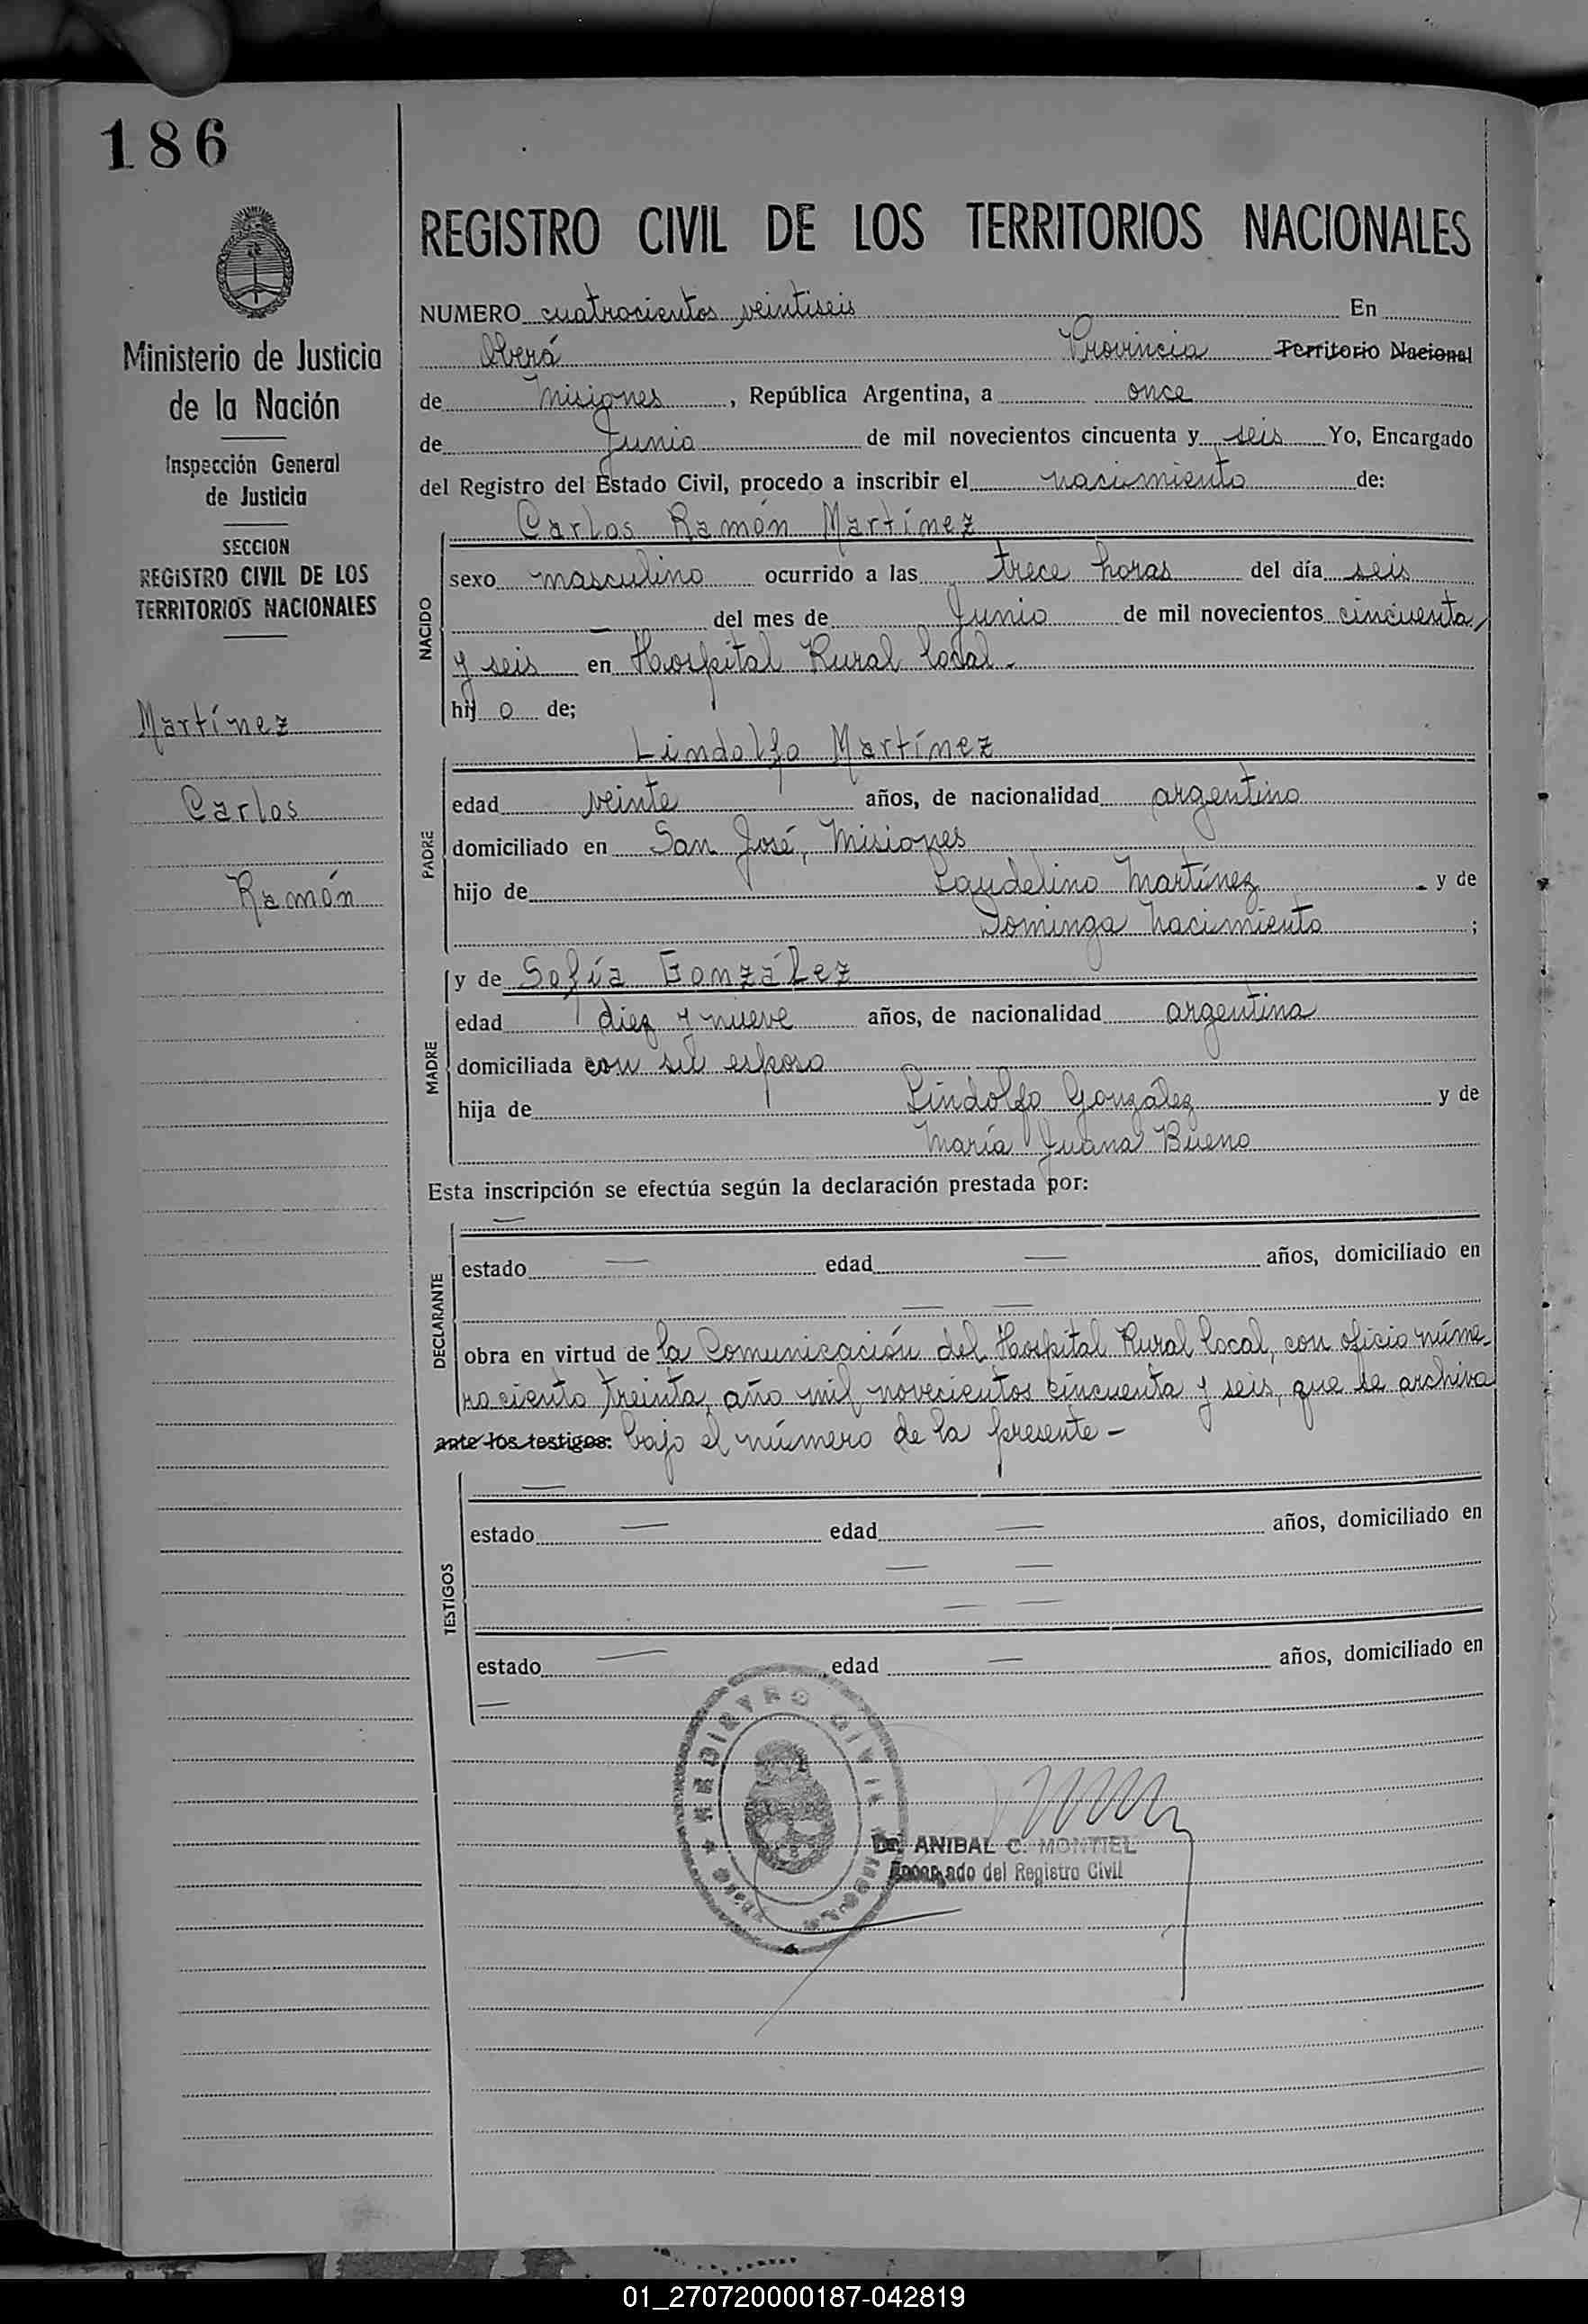 186
REGISTRO CIVIL DE LOS TERRITORIOS NACIONALES
Ministerio de Justicia
de la Nación
Inspección General
de Justicia
SECCION
REGISTRO CIVIL DE LOS
TERRITORIOS NACIONALES
Martínez
Carlos
Ramón
NUMERO cuatrocientos veintiseis En
Oberá Provincia Territorio Nacional
de Misiones, República Argentina, a once
de Junio de mil novecientos cincuenta y seis Yo, Encargado
del Registro del Estado Civil, procedo a inscribir el nacimiento de:
NACIDO
Carlos Ramón Martínez
sexo masculino ocurrido a las trece horas del día seis
— del mes de Junio de mil novecientos cincuenta
y seis en Hospital Rural local.
hijo de;
PADRE
Lindolfo Martínez
edad veinte años, de nacionalidad argentino
domiciliado en San José, Misiones
hijo de Laudelino Martínez y de
Dominga Nacimiento ;
MADRE
y de Sofía González
edad diez y nueve años, de nacionalidad argentina
domiciliada con su esposo
hija de Lindolfo González y de
María Juana Bueno
Esta inscripción se efectúa según la declaración prestada por:
DECLARANTE
—
estado — edad — años, domiciliado en
— —
obra en virtud de la Comunicación del Hospital Rural local, con oficio núme-
ro ciento treinta, año mil novecientos cincuenta y seis, que se archiva
ante los testigos: bajo el número de la presente -
TESTIGOS
—
estado — edad — años, domiciliado en
— —
— —
estado — edad — años, domiciliado en
—
REGISTRO CIVIL
Dr. ANIBAL C. MONTIEL
Encargado del Registro Civil
01_270720000187-042819